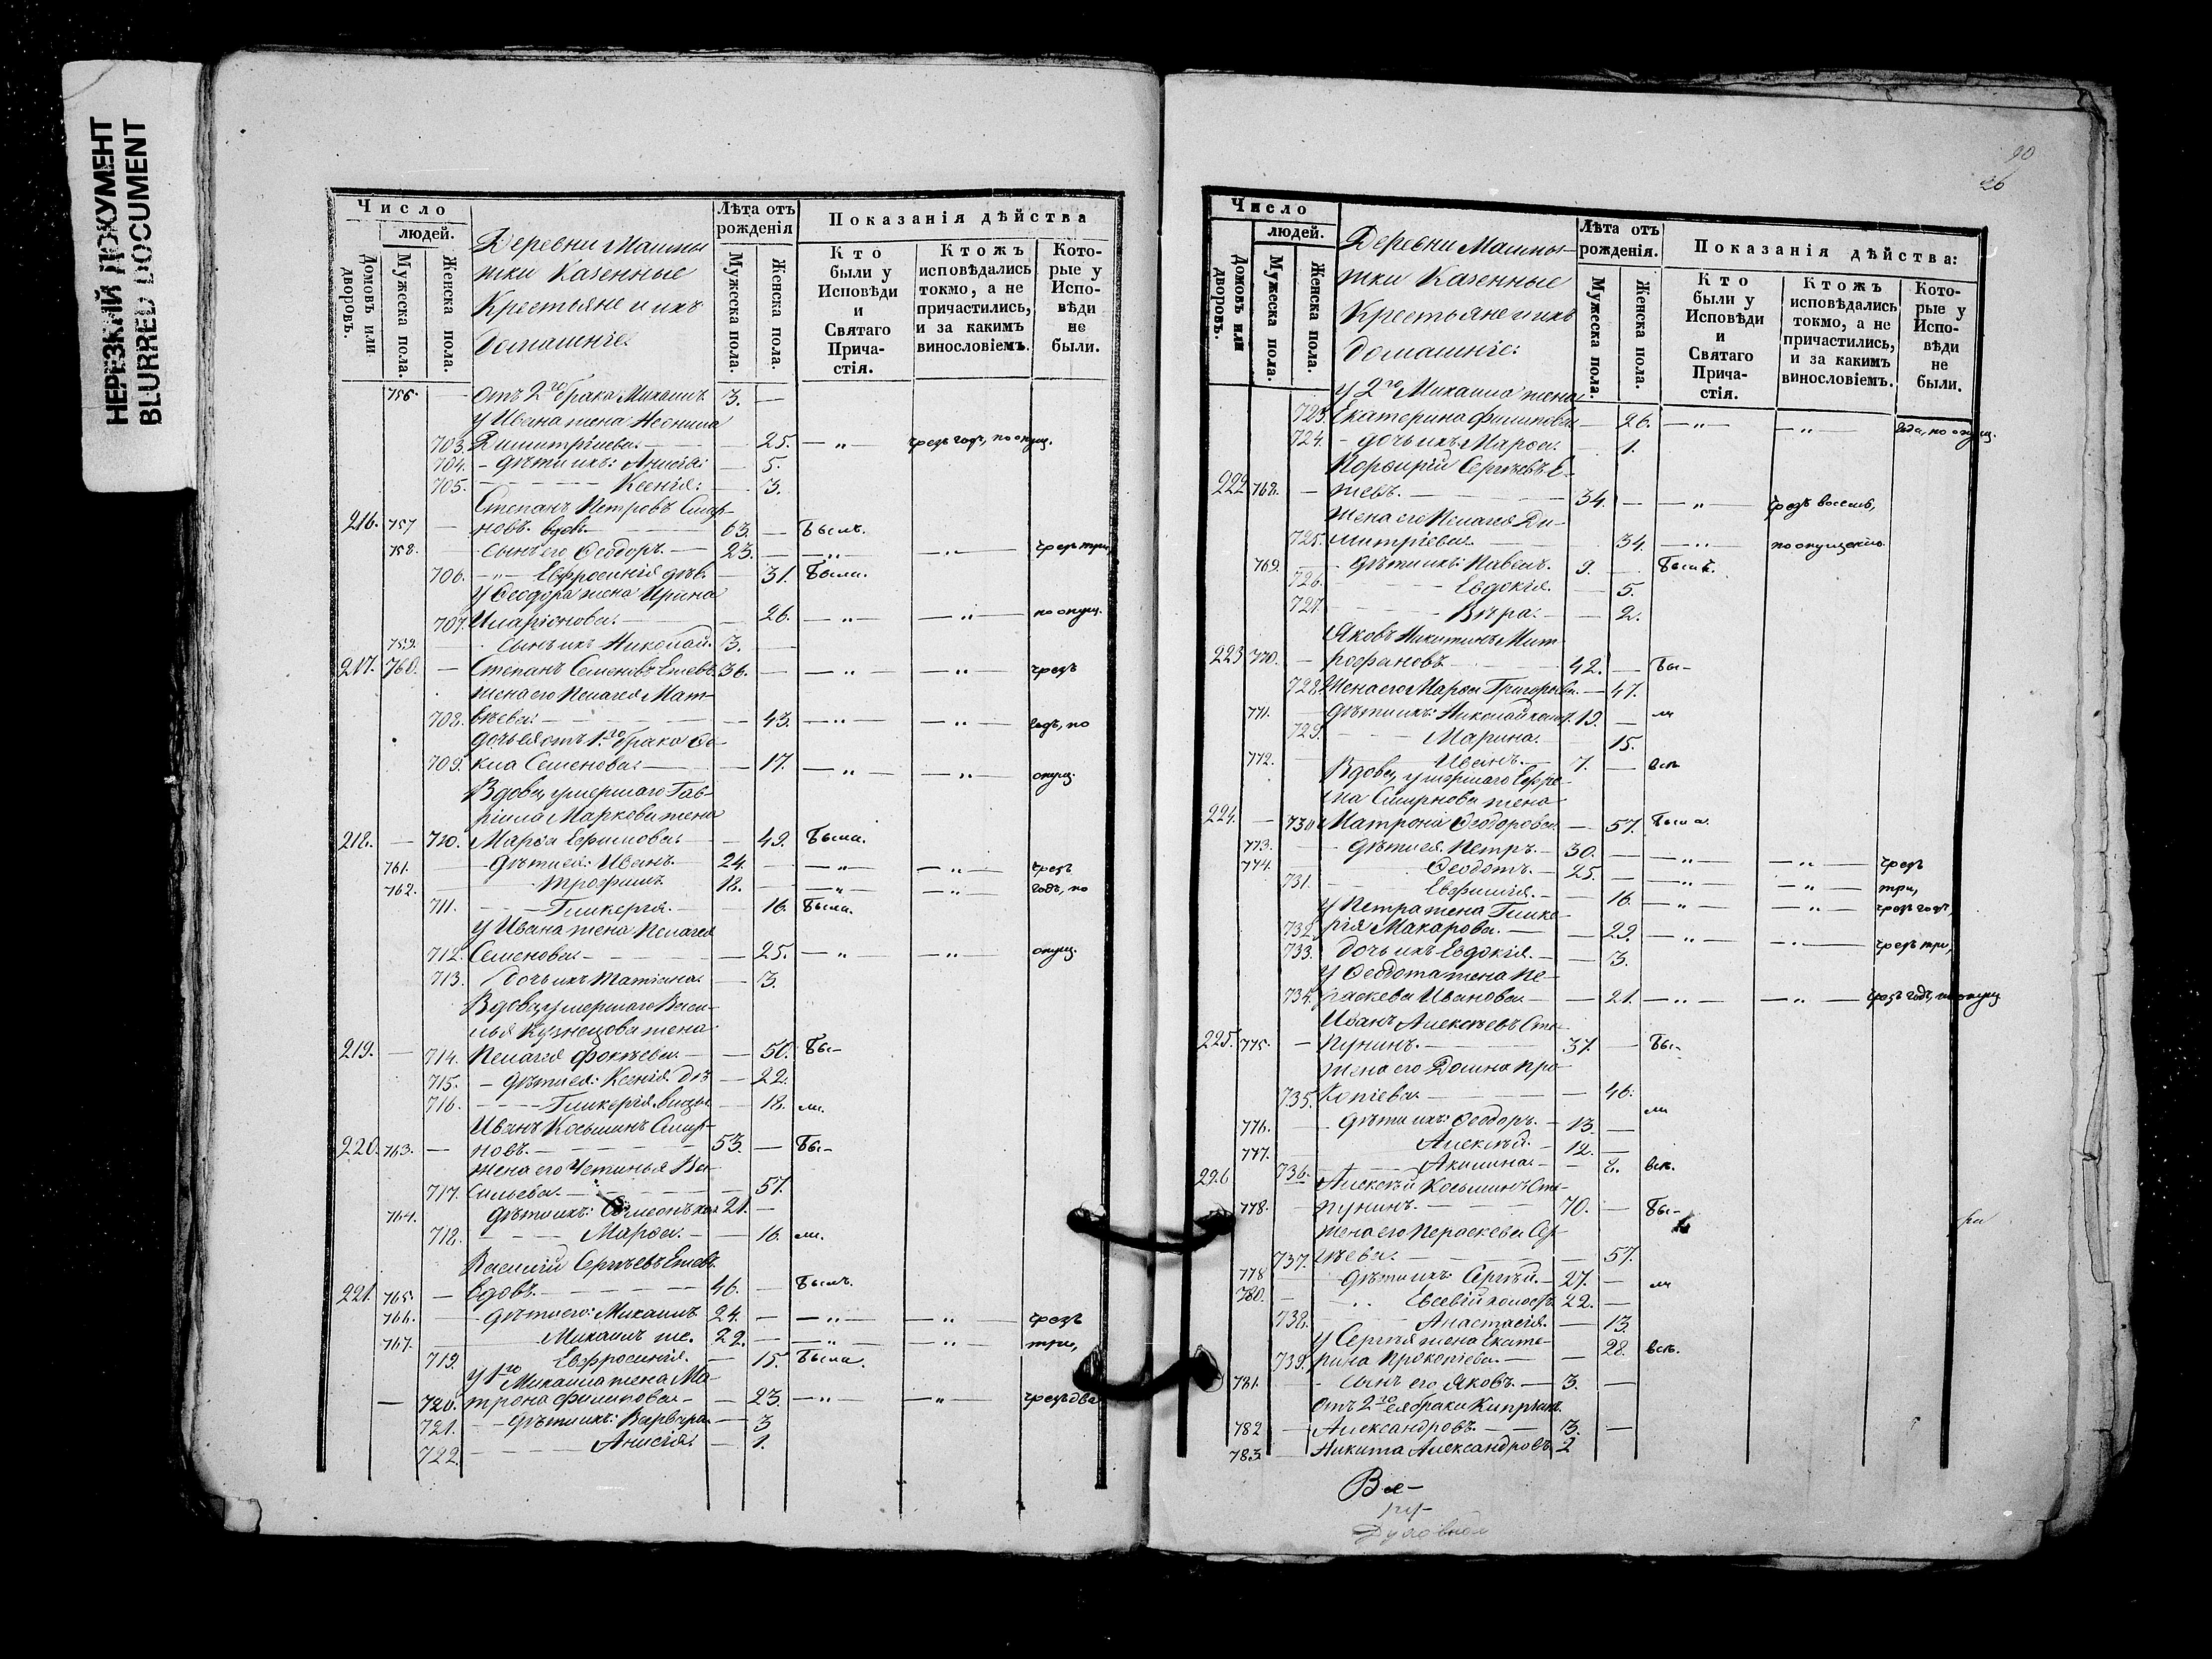 НЕРЕЗКИЙ ДОКУМЕНТ
BLURRED DOCUMENT
Число
людей.
Домовъ или дворовъ.
Мужеска пола.
Женска пола.
Деревни Машпы
тки Казенные
Крестьяне и ихъ
домашніе
Лѣта отъ рожденія
Мужеска пола.
Женска пола.
Показанія дѣйства
Кто были у Исповѣди и Святаго Причастія.
Ктожъ исповѣдались токмо, а не причастились, и за какимъ винословіемъ.
Которые у Исповѣди не были.
756. — отъ 2го брака Михаилъ 3. —
у Ивана жена Неонила
703. Димитріева. — 25. — „ чрезъ годъ, по опущ.
704. — дѣти ихъ: Анисія: — 5.
705. — Ксенія: — 3.
Степанъ Петровъ Смир-
216. 757 — новъ. вдовъ. — 63. — Былъ.
758. — сынъ его Ѳеодоръ. — 23. — „ — „ — чрезъ три,
706. — „ — Евфросинія дѣв. — 31. Была.
у Ѳеодора жена Ирина
707. Иларіонова. — 26. — „ — „ — по опущ.
759. — сынъ ихъ Николай. 3. —
217. 760. — Степанъ Семеновъ Ешевъ 36. — „ — „ — чрезъ
жена его Пелагея Мат-
708. вѣева: — 43. — „ — „ — годъ, по
дочь ея отъ 1.го брака Ѳе-
709. кла Семенова: — 17. — „ — „ — опущ.
Вдова, умершаго Гав-
ріила Маркова жена
218. — 710. Марѳа Ефимова: — 49. Была.
761. — дѣти ея: Иванъ — 24. — „ — „ — чрезъ
762. — Трофимъ 18. — „ — „ — годъ, по
711. — Гликерія. — 16. Была.
у Ивана жена Пелагея
712. Семенова: — 25. — „ — „ — опущ.
713. дочь ихъ Татіана: — 3.
Вдова, умершаго Васи-
лья Кузнецова жена:
219. — 714. Пелагея Фокѣева. — 50. Бы-
715. — дѣти ея: Ксенія дѣ — 22.
716. — Гликерія. вицы — 18. ли.
Иванъ Косьминъ Смир-
220. 763. — новъ. — 53. — Бы-
жена его Устинья Ва-
717. сильева. — 57.
764. дѣти ихъ: Симеонъ хол. 21. —
718. — Марѳа. — 16. ли.
Василій Сергѣевъ Ешевъ
221. 765. — вдовъ. — 46. — Былъ.
766. — дѣти его: Михаилъ 24. — „ — „ — чрезъ
767. — Михаилъ же. 22. — „ — „ — три,
719. Евфросинія. — 15. Была.
у 1го Михаила жена Ма-
— 720. трона Филипова — 23. — „ — „ — чрезъ два
721. — дѣти ихъ: Варвара — 3
722. — Анисія: — 1.
90
26
Число
людей.
Домовъ или дворовъ.
Мужеска пола.
Женска пола.
Деревни Машпы-
тки Казенные
Крестьяне и ихъ
домашніе:
Лѣта отъ рожденія.
Мужеска пола.
Женска пола.
Показанія дѣйства:
Кто были у Исповѣди и Святаго Причастія.
Ктожъ исповѣдались токмо, а не причастились, и за какимъ винословіемъ.
Которые у Исповѣди не были.
у 2го Михаила жена
723. Екатерина Филипова — 26. — „ — „ — года, по опущ.
724. — дочь ихъ Марѳа. — 1.
Порфирій Сергѣевъ Е-
222 768. — шевъ. — 34. — „ — чрезъ восемь,
жена его Пелагея Ди-
725. митріева. — 34. — „ — по опущенію
769. — дѣти ихъ: Павелъ. 9. — Были.
726. — Евдокія. — 5.
727. — Вѣра. — 2.
Яковъ Никитинъ Мит-
223 770. — рофановъ — 42. — Бы-
728. жена его Марѳа Григорьева. — 47.
771. — дѣти ихъ: Николай холост. 19. — ли
729. — Марина. — 15.
772. — Иванъ. — 7. — всѣ.
Вдова, умершаго Ефре-
ма Смирнова жена
224. — 730 Матрона Ѳеодорова. — 57. Была.
773. — дѣти ея Петръ. — 30. — „ — „ — чрезъ
774. Ѳеодотъ. — 25. — „ — „ — три,
731. Евфимія. — 16. — „ — „ — чрезъ годъ,
у Петра жена Глике-
732. рія Макарова. — 29. — „ — „ — чрезъ три,
733. дочь ихъ Евдокія. — 3.
у Ѳеодота жена Пе-
734. раскева Иванова. — 21. — „ — „ — чрезъ годъ, по опущ
Иванъ Алексѣевъ Сте-
225. 775. — пунинъ. — 37. — Бы-
жена его Домна Про-
735. копіева. — 46.
776. — дѣти ихъ: Ѳеодоръ. — 13. — ли
777. Алексѣй. — 12. —
736. — Акилина. — 8. всѣ.
226 Алексѣй Косьминъ Сте-
778. — пунинъ. — 70. — Бы-
жена его Пераскева Сер-
737. гѣева. — 57.
778 дѣти ихъ: Сергѣй. — 27. — ли
780. — Евсевій холостъ. 22. —
738. — Анастасія. — 13.
у Сергѣя жена Екате-
739. рина Прокопіева. — 28. всѣ.
781. — сынъ его Яковъ. — 3. —
отъ 2го ея брака Кипріанъ
782 — Александровъ. — 3. —
783 — Никита Александровъ 2
Ве-
Духовной